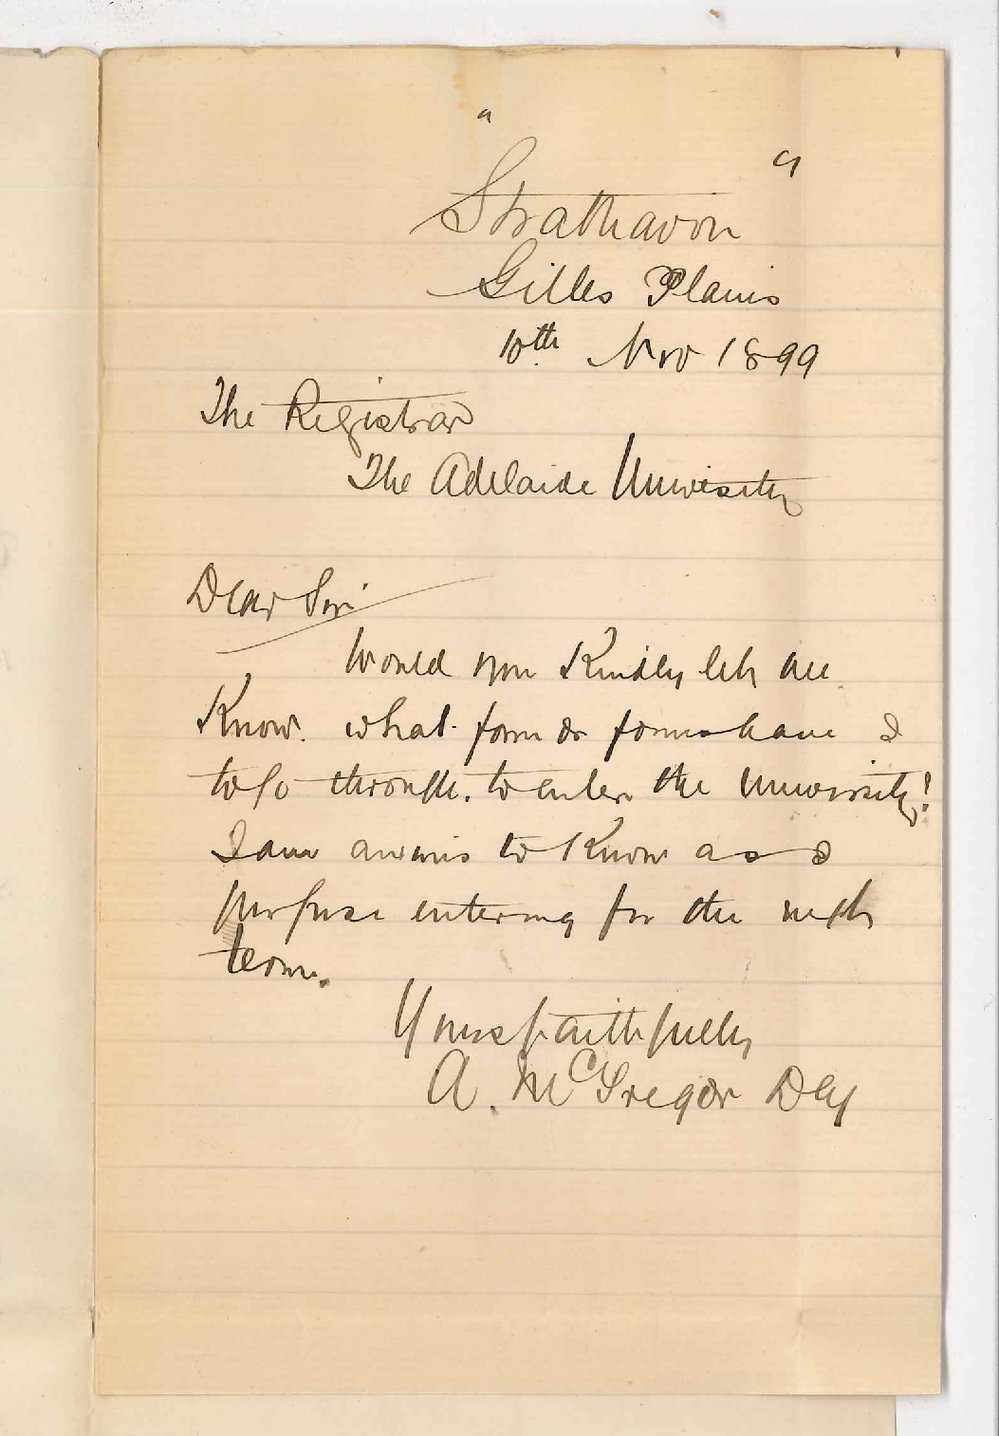 "Strathavon"
Gilles Plains
10th. Nov 1899
The Registrar
The Adelaide University
Dear Sir
Would you Kindly let me
Know. what form or forms have I
to go through. to enter the University!
I am anxious to Know as I
purpose entering for the next
term.
Yours faithfully
A. McGregor Dey